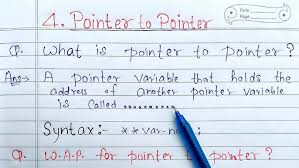 4. Pointer to Pointer
Date
Page
Q. What is pointer to pointer?
Ans→ A pointer variable that holds the
address of another pointer variable
is called ..........
Syntax:- **var-na ;
Q. W.A.P. for pointer to pointer?